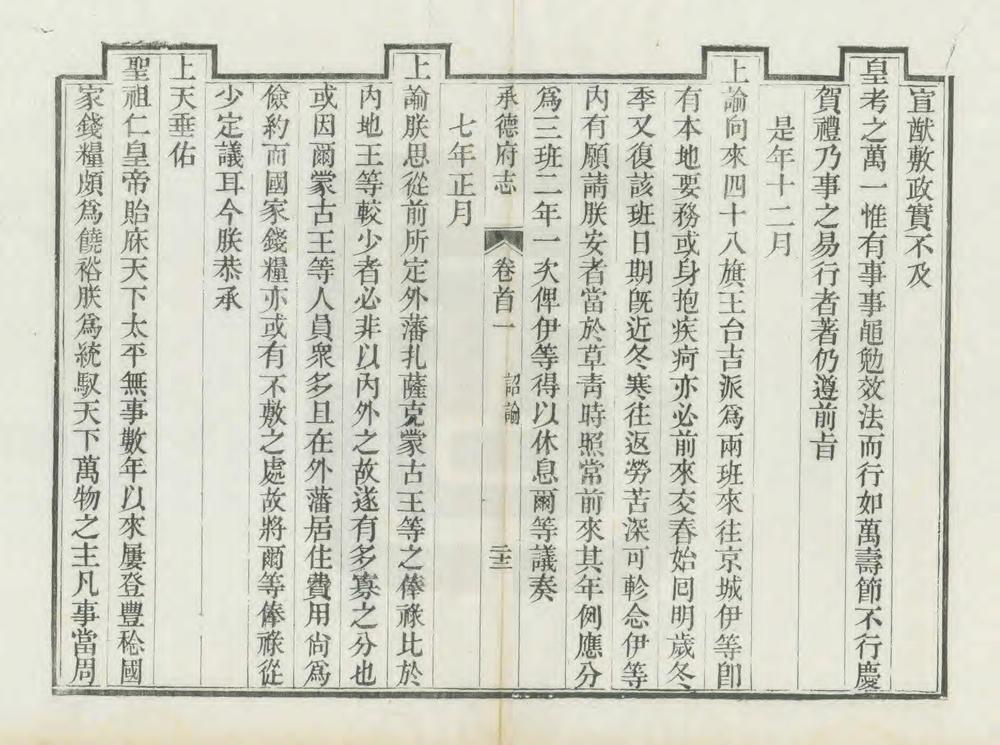 宣猷敷政實不及
皇考之萬一惟有事事黽勉效法而行如萬壽節不行慶
賀禮乃事之易行者著仍遵前旨
是年十二月
上諭向來四十八旗王台吉派爲兩班來往京城伊等卽
有本地要務或身抱疾疴亦必前來交春始囘明歲冬
季又復該班日期旣近冬寒往返勞苦深可軫念伊等
內有願請朕安者當於草靑時照常前來其年例應分
爲三班二年一次俾伊等得以休息爾等議奏
承德府志 卷首一 詔諭 二十三
七年正月
上諭朕思從前所定外藩扎薩克蒙古王等之俸祿比於
內地王等較少者必非以內外之故遂有多寡之分也
或因爾蒙古王等人員衆多且在外藩居住費用尙爲
儉約而國家錢糧亦或有不敷之處故將爾等俸祿從
少定議耳今朕恭承
上天垂佑
聖祖仁皇帝貽庥天下太平無事數年以來屢登豐稔國
家錢糧頗爲饒裕朕爲統馭天下萬物之主凡事當周